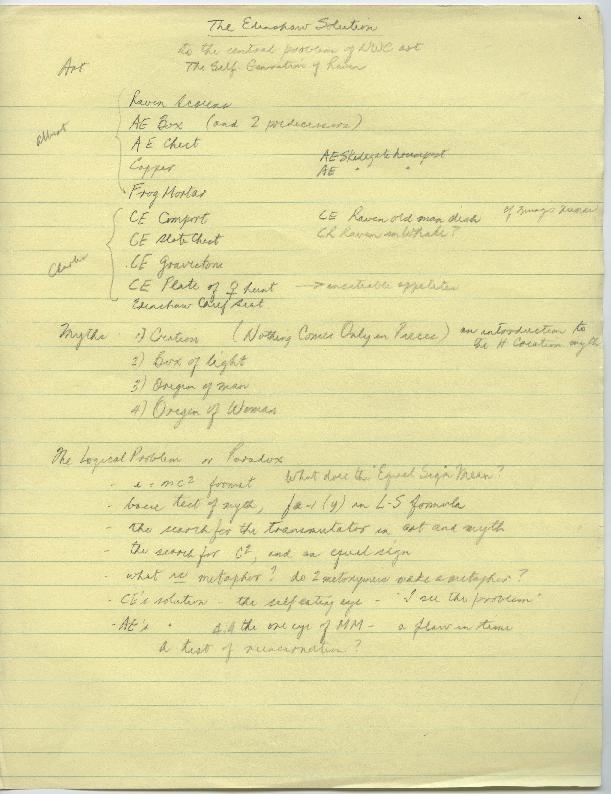 The Edenshaw Solution
to the central problem of NWC art
The Self-Generation of Raven
Art
Albert
Raven Screens
AE Box (and 2 predecessors)
AE Chest
Copper AE Skidegate
AE " "
Frog Mortar
Charles
CE Comport CE Raven old man dish
CE Slate Chest CE Raven in Whale?
CE Gravestone
CE Plate of ♀ hunt → insatiable appetites
Edenshaw Chief Seat
Myths 1) Creation (Nothing Comes Only in Pieces) an introduction to
the H Creation myth
2) Box of light
3) Origin of man
4) Origin of Woman
The Logical Problem or Paradox
- e = mc² format What does the "Equal Sign" Mean?
- basic test of myth, fa-1 (y) in L-S formula
- the search for the transmutator in art and myth
- the search for C², and an equal sign
- what is metaphor? do 2 metonymies make a metaphor?
- CE's solution the self eating eye - "I see the problem"
- AE's " the one eye of MM - a flaw in time
a test of reincarnation?